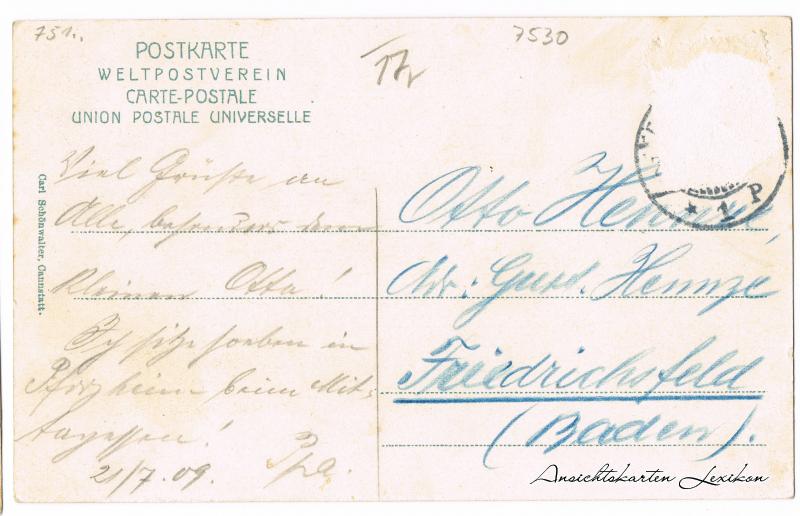 7530
POSTKARTE
WELTPOSTVEREIN
CARTE-POSTALE
UNION POSTALE UNIVERSELLE
Carl Schönwalter, Cannstatt.
Viel Grüße an
Alle, besonders dem
kleinen Otto!
Ich sitze soeben in
Pforzheim beim Mit-
tagessen!
21/7.09.
Otto Hennze,
Adr: Gust. Hennze
Friedrichsfeld
(Baden).
* 1 P
Ansichtskarten Lexikon